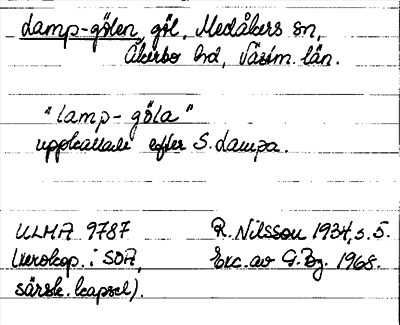 Lamp-gölen, göl, Medåkers sn,
Åkerbo hd, Västm. län.
"lamp-göla"
uppkallade efter S. Lampa.
ULMA 9787 R. Nilsson 1934, s. 5.
(xerokop. i SOA, Exc. av G. Bg. 1968.
särsk. kapsel).